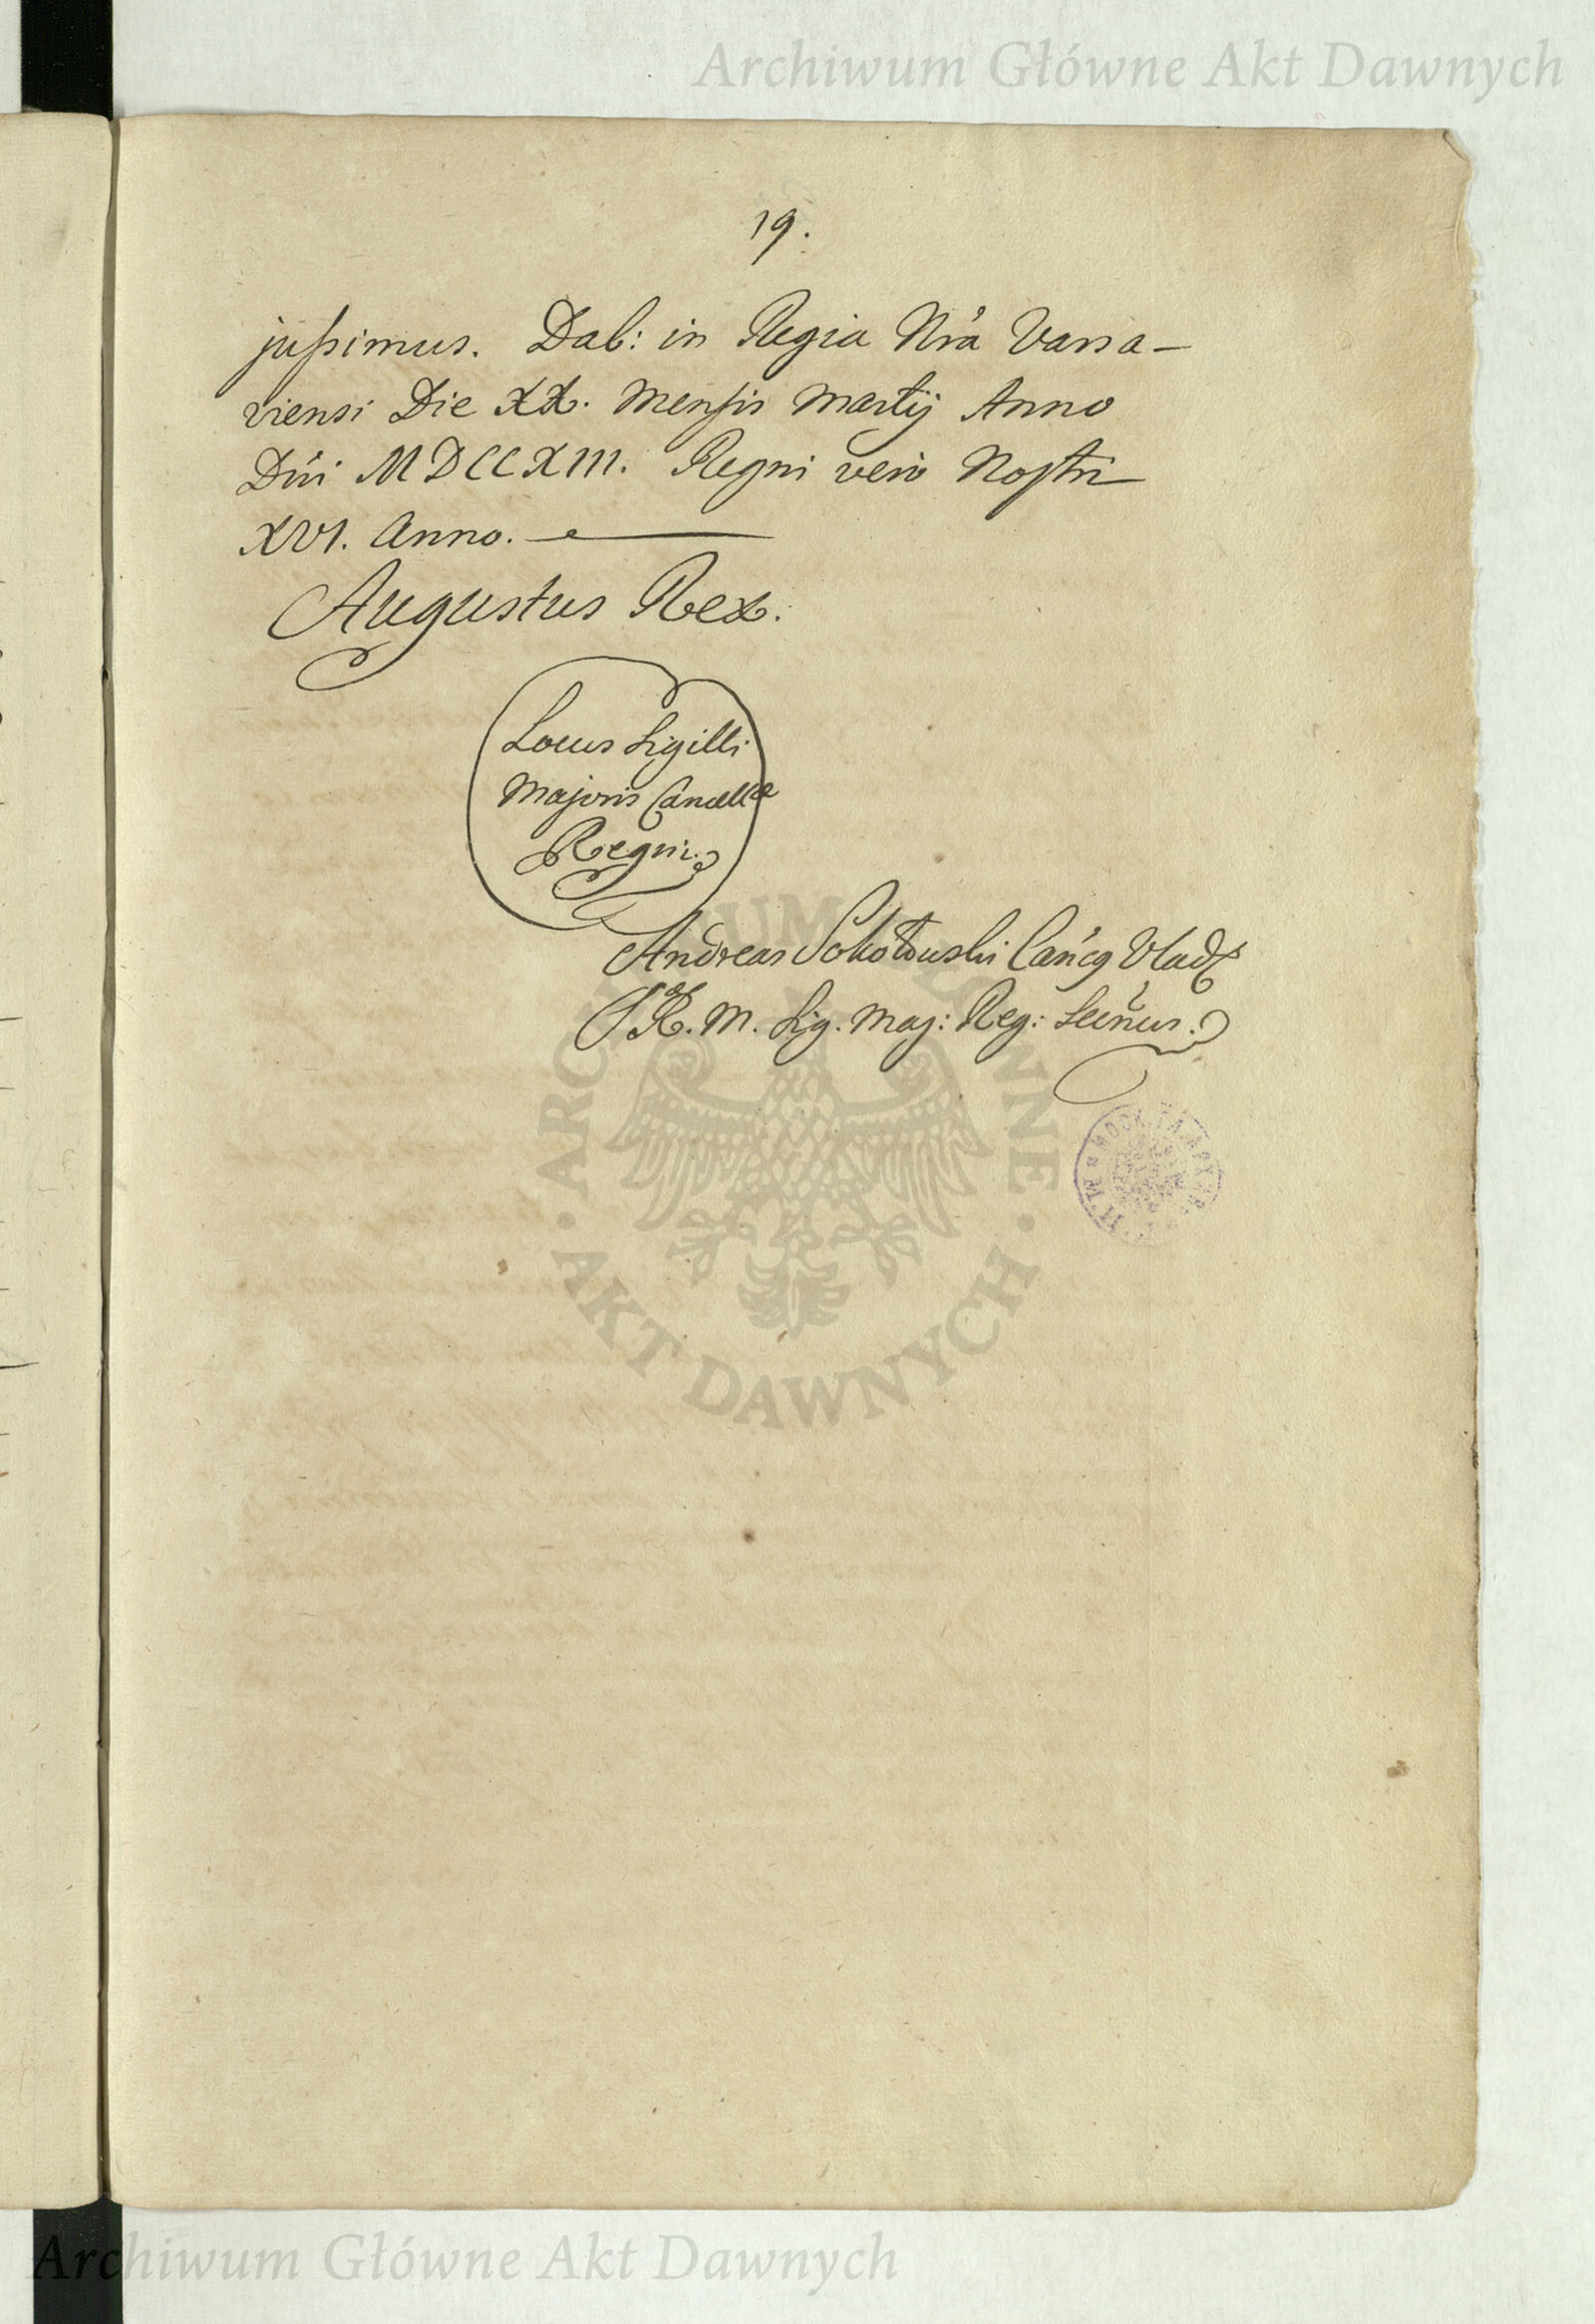 Archiwum Główne Akt Dawnych
19.
jussimus. Dab: in Regia Nrã Varsa-
viensi Die XX. Mensis Martij Anno
Dñi MDCCXIII. Regni verò Nostri
XVI. Anno.
Augustus Rex.
Locus Sigilli
Majoris Cancellae
Regni.
Andreas Sokołowski Cańcq Vlad
S R. M. Sig. Maj: Reg: Secr̃us.
AKT DAWNYCH
Archiwum Główne Akt Dawnych